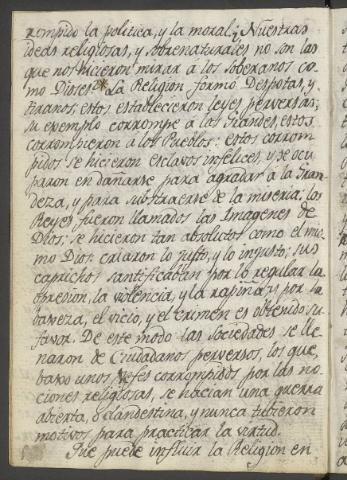 rompido la politica, y la moral; Nuestras
ideas religiosas, y sobrenaturales no son las
que nos hicieron mirar à los soberanos co-
mo Dioses. La Religion formó Despotas, y
tiranos; estos establecieron leyes perversas;
su exemplo corrompe à los Grandes, estos
corrompieron à los Pueblos: estos corrom-
pidos se hicieron esclavos infelices, y se ocu
paron en dañarse para agradar à la Gran
deza, y para substraerse de la miseria: los
Reyes fueron llamados las Imagenes de
Dios; se hicieron tan absolutos como el mis
mo Dios: crearon lo justo, y lo injusto; sus
caprichos santificaban por lo regular la
opresion, la violencia, y la rapiña; y por la
baxeza, el vicio, y el crimen es obtenido su
favor. De este modo las sociedades se lle
naron de Ciudadanos perversos, los que,
baxo unos Xefes corrompidos por las no
ciones religiosas, se hacian una guerra
abierta, ó clandestina, y nunca tubieron
motivos para practicar la virtud.
Que puede influir la Religion en